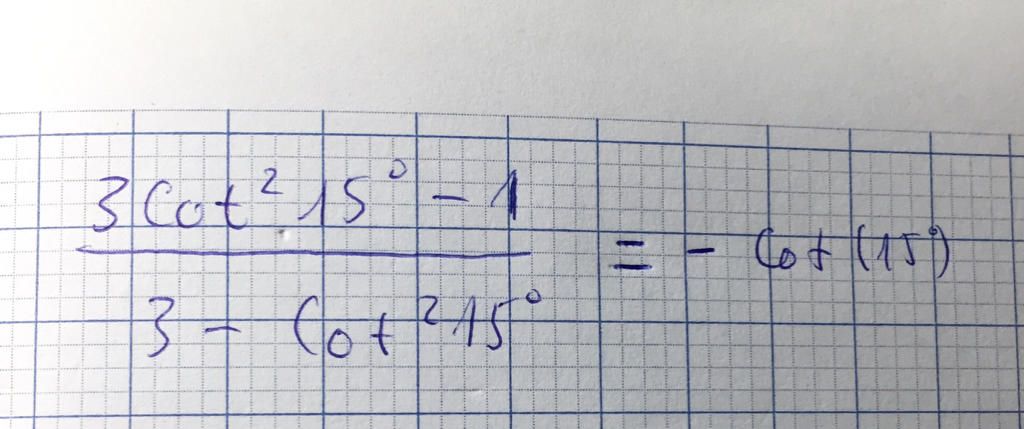 3 Cot² 15° - 1
= - Cot (15°)
3 - Cot² 15°